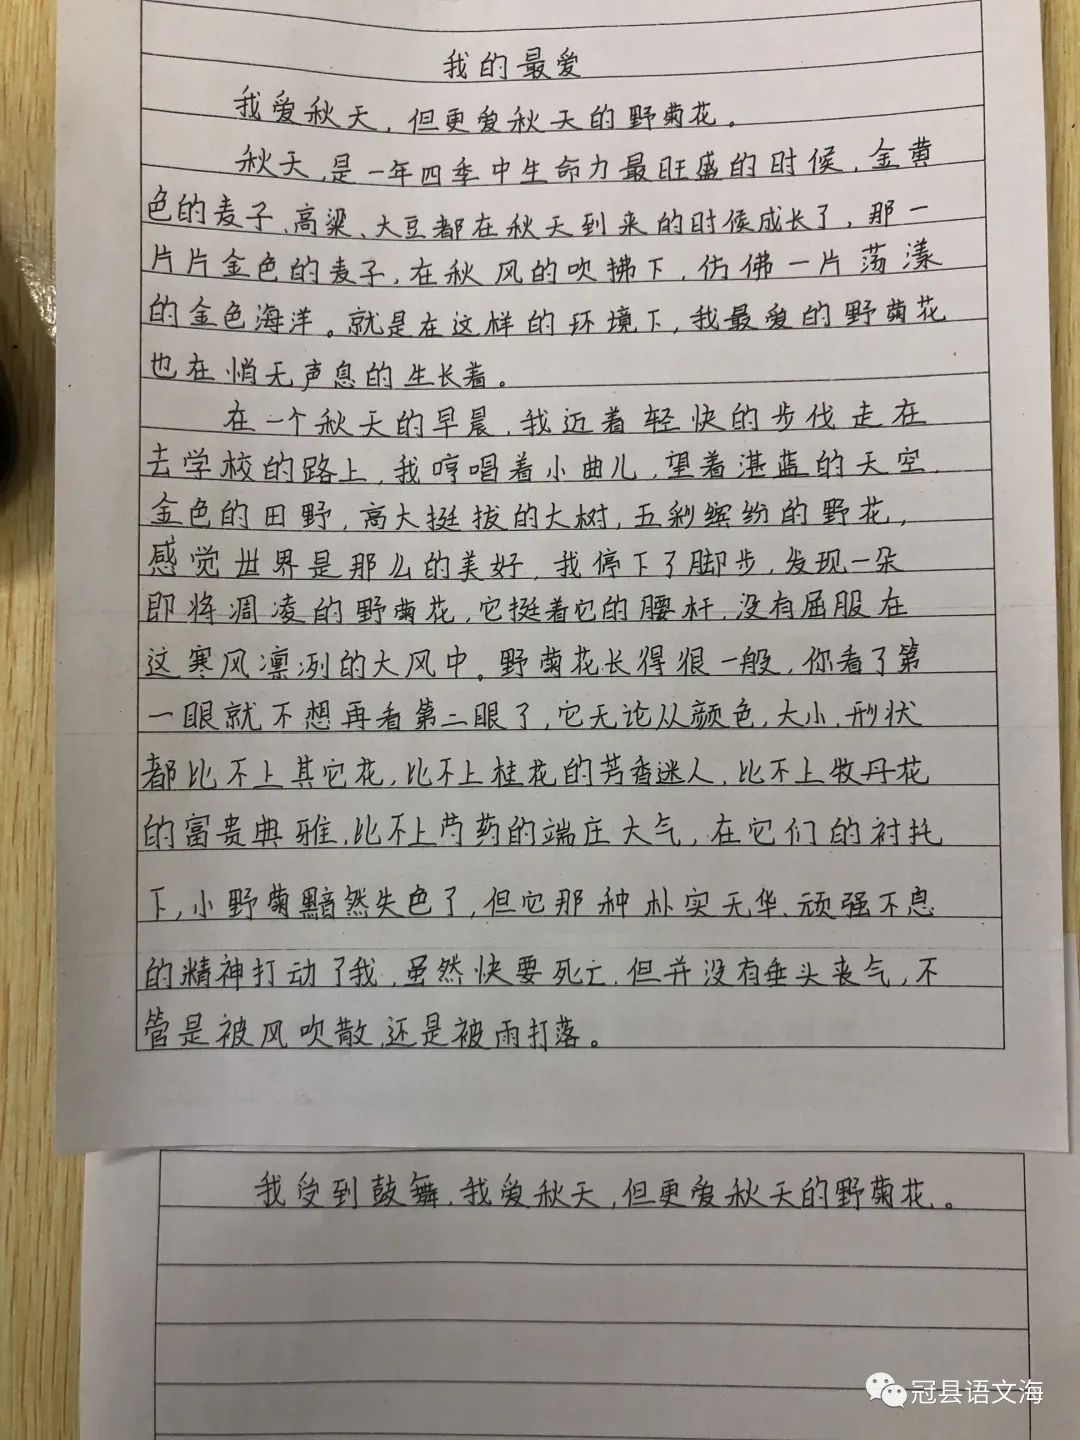 我的最爱
我爱秋天，但更爱秋天的野菊花。
秋天，是一年四季中生命力最旺盛的时候，金黄
色的麦子、高粱、大豆都在秋天到来的时候成长了，那一
片片金色的麦子，在秋风的吹拂下，仿佛一片荡漾
的金色海洋。就是在这样的环境下，我最爱的野菊花
也在悄无声息的生长着。
在一个秋天的早晨，我迈着轻快的步伐走在
去学校的路上，我哼唱着小曲儿，望着湛蓝的天空，
金色的田野，高大挺拔的大树，五彩缤纷的野花，
感觉世界是那么的美好，我停下了脚步，发现一朵
即将凋凌的野菊花，它挺着它的腰杆，没有屈服在
这寒风凛冽的大风中。野菊花长得很一般，你看了第
一眼就不想再看第二眼了，它无论从颜色，大小，形状
都比不上其它花，比不上桂花的芳香迷人，比不上牧丹花
的富贵典雅，比不上芍药的端庄大气，在它们的衬托
下，小野菊黯然失色了，但它那种朴实无华、顽强不息
的精神打动了我，虽然快要死亡，但并没有垂头丧气，不
管是被风吹散，还是被雨打落。
我受到鼓舞，我爱秋天，但更爱秋天的野菊花。
冠县语文海